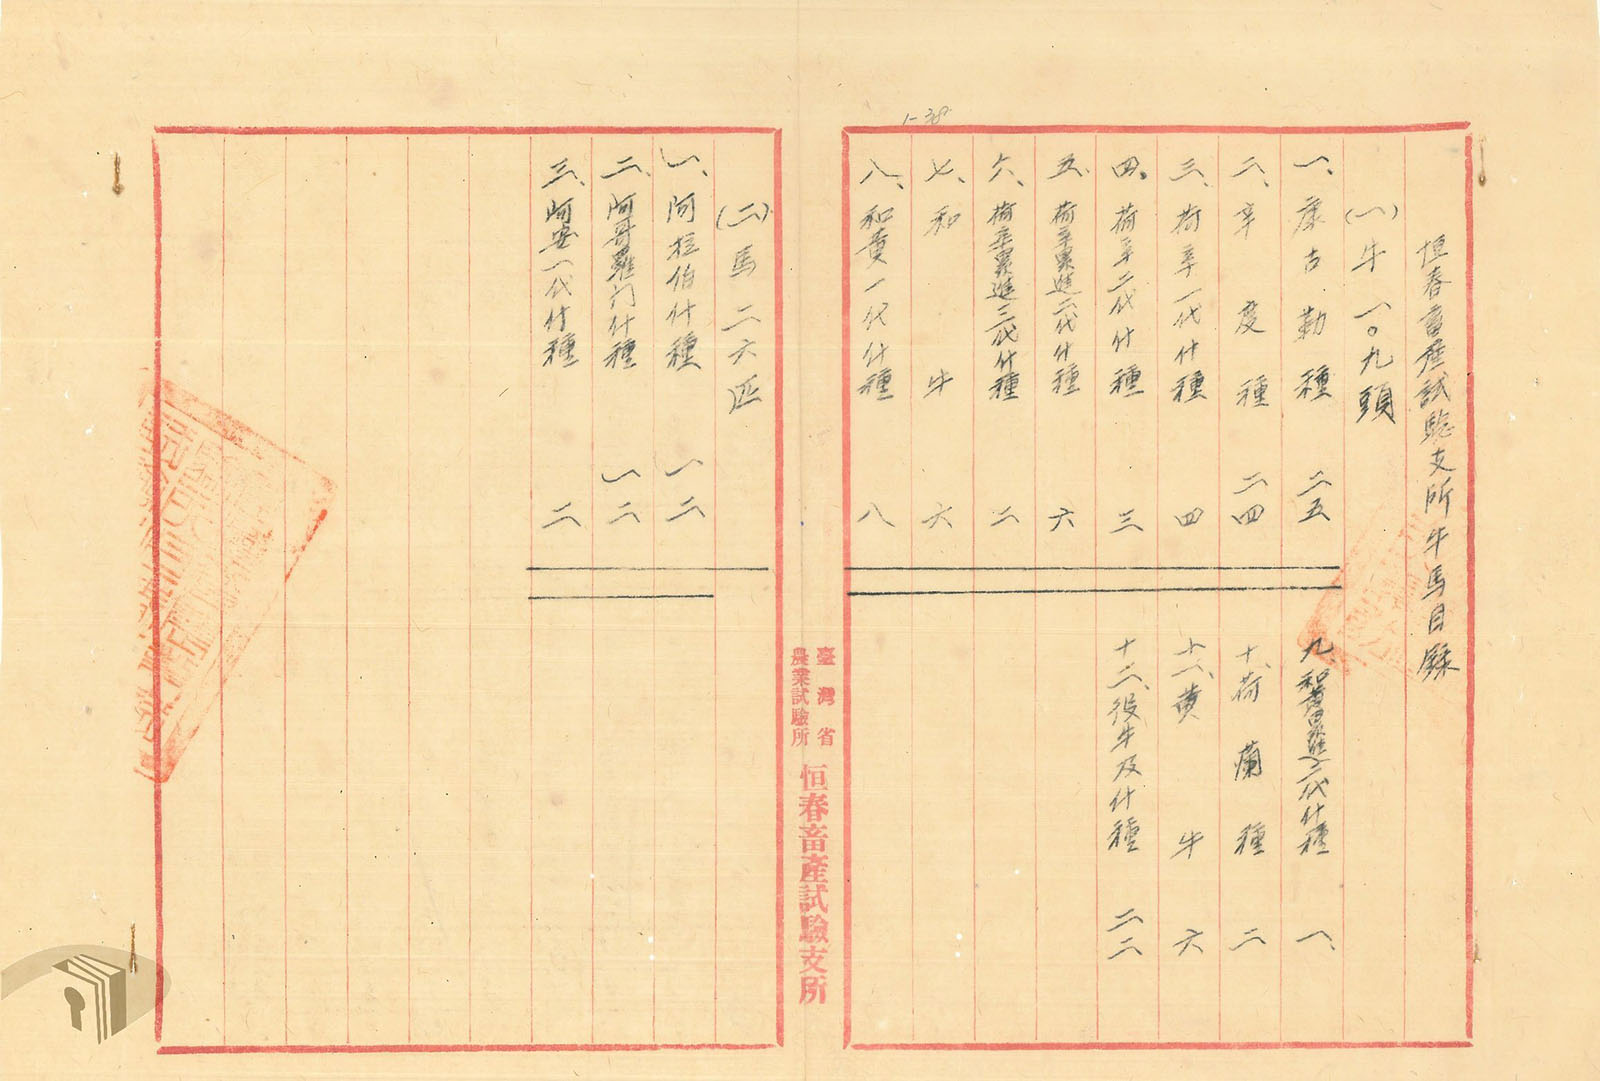 1-38
恒春畜産試驗支所牛馬目錄
(一)牛 一〇九頭
一、康古勒種 二五
二、辛度種 二四
三、荷辛一代什種 四
四、荷辛二代什種 三
五、荷辛累進二代什種 六
六、荷辛累進三代什種 二
七、和牛 六
八、和黃一代什種 八
九、和黃累進二代什種 一
十、荷蘭種 二
十一、黃牛 六
十二、役牛及什種 二二
臺灣省
農業試驗所
恒春畜產試驗支所
(二)馬 二六匹
一、阿拉伯什種 一二
二、阿哥羅門什種 一二
三、阿安一代什種 二